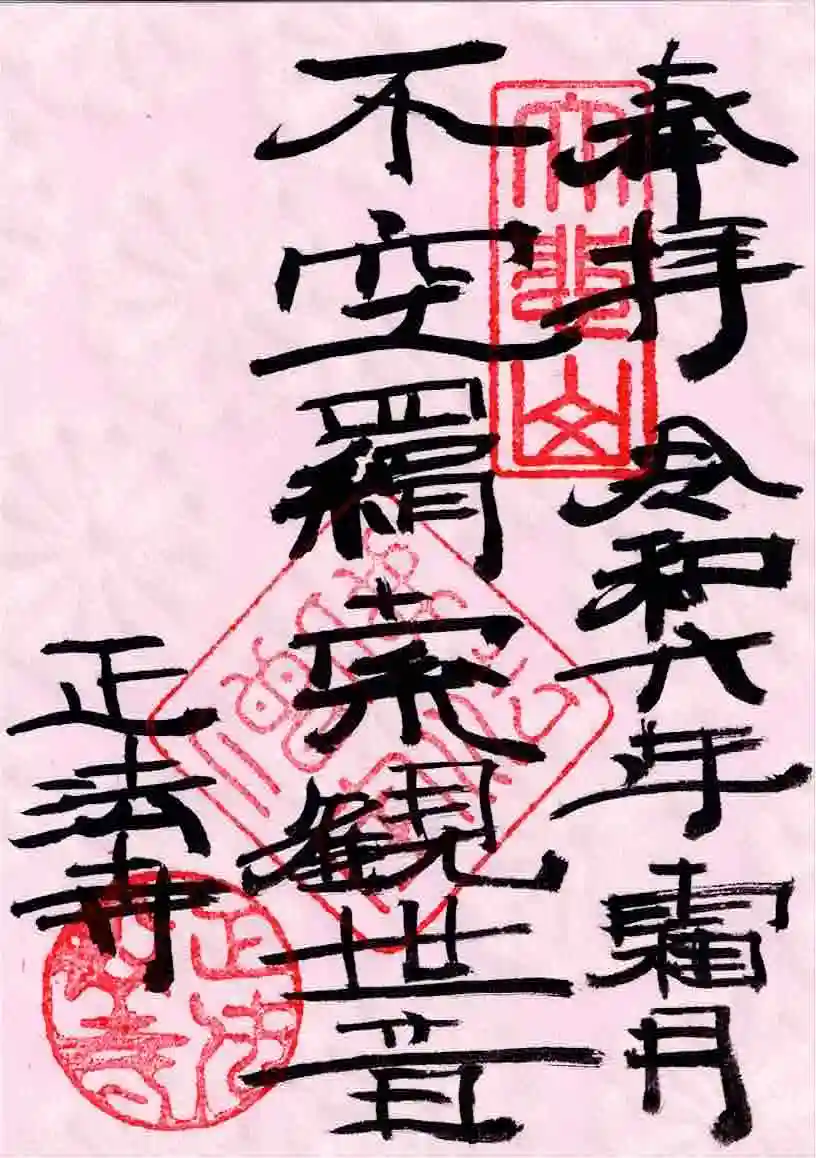 奉拝 令和六年 霜月
不空羂索観世音
正法寺
正法寺